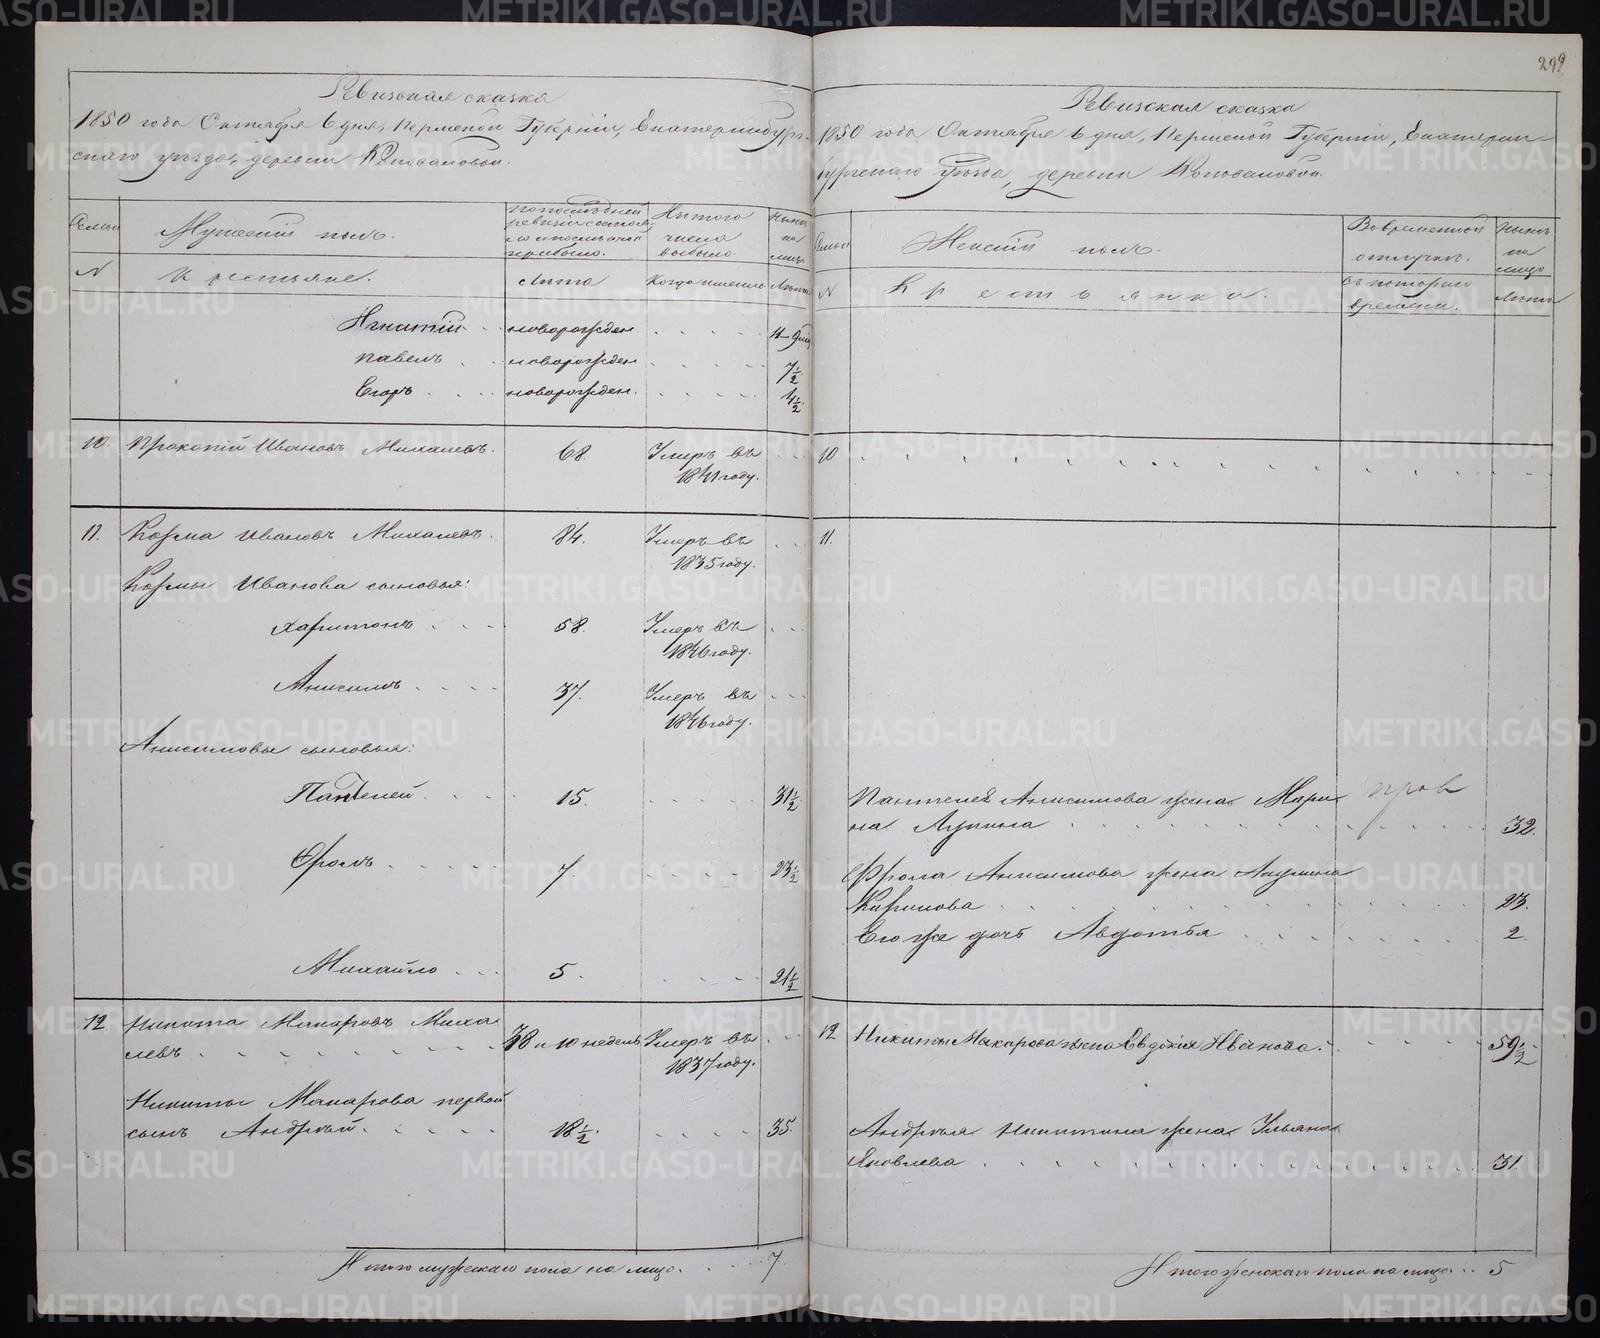 299
Ревизская сказка
1850 года Октября 6 дня, Пермской Губернiи, Екатеринбург-
скаго уѣзда, деревни Коноваловой.
Семьи
Мужескiй полъ.
По последней ревизiи состояло и после оной прибыло.
Изъ того числа выбыло.
Нынѣ на лицо
№
Крестьяне.
Лѣта
Когда именно
Лѣта
Игнатiй новорожден
Павелъ новорожден 7½
Егоръ новорожден. 4½
10. Прокопiй Ивановъ Михалевъ. 68. Умеръ въ
1841 году.
11. Козма Ивановъ Михалевъ. 84. Умеръ въ
1835 году.
Козмы Иванова сыновья:
Харитонъ 58. Умеръ въ
1846 году.
Анисимъ 37. Умеръ въ
1846 году.
Анисимовы сыновья:
Пантелей 15. 31½
Фролъ 7. 23½
Михайло 5. 21½
12 Никита Макаровъ Миха
левъ 38 и 10 недель Умеръ въ
1837 году.
Никиты Макарова первой
сынъ Андрей 18½. 35.
Итого мужескаго пола на лицо 7.
Ревизская сказка
1850 года Октября 6 дня, Пермской Губернiи, Екатерин-
бургскаго Уѣзда, деревни Коноваловой.
Семьи
Женскiй полъ.
Во временной отлучке.
Нынѣ на лицо
№
Крестьянки.
Съ котораго времени.
Лѣта
10
11.
Пантелея Анисимова жена Мари
на Лупина 32.
пров
Фрола Анисимова жена
23.
Его же дочь Авдотья 2
12 Никиты Макарова жена Евдокiя Иванова. 59½
Андрея Никитина жена Ульяна
Яковлева 31.
Итого женскаго пола на лицо 5
METRIKI.GASO-URAL.RU